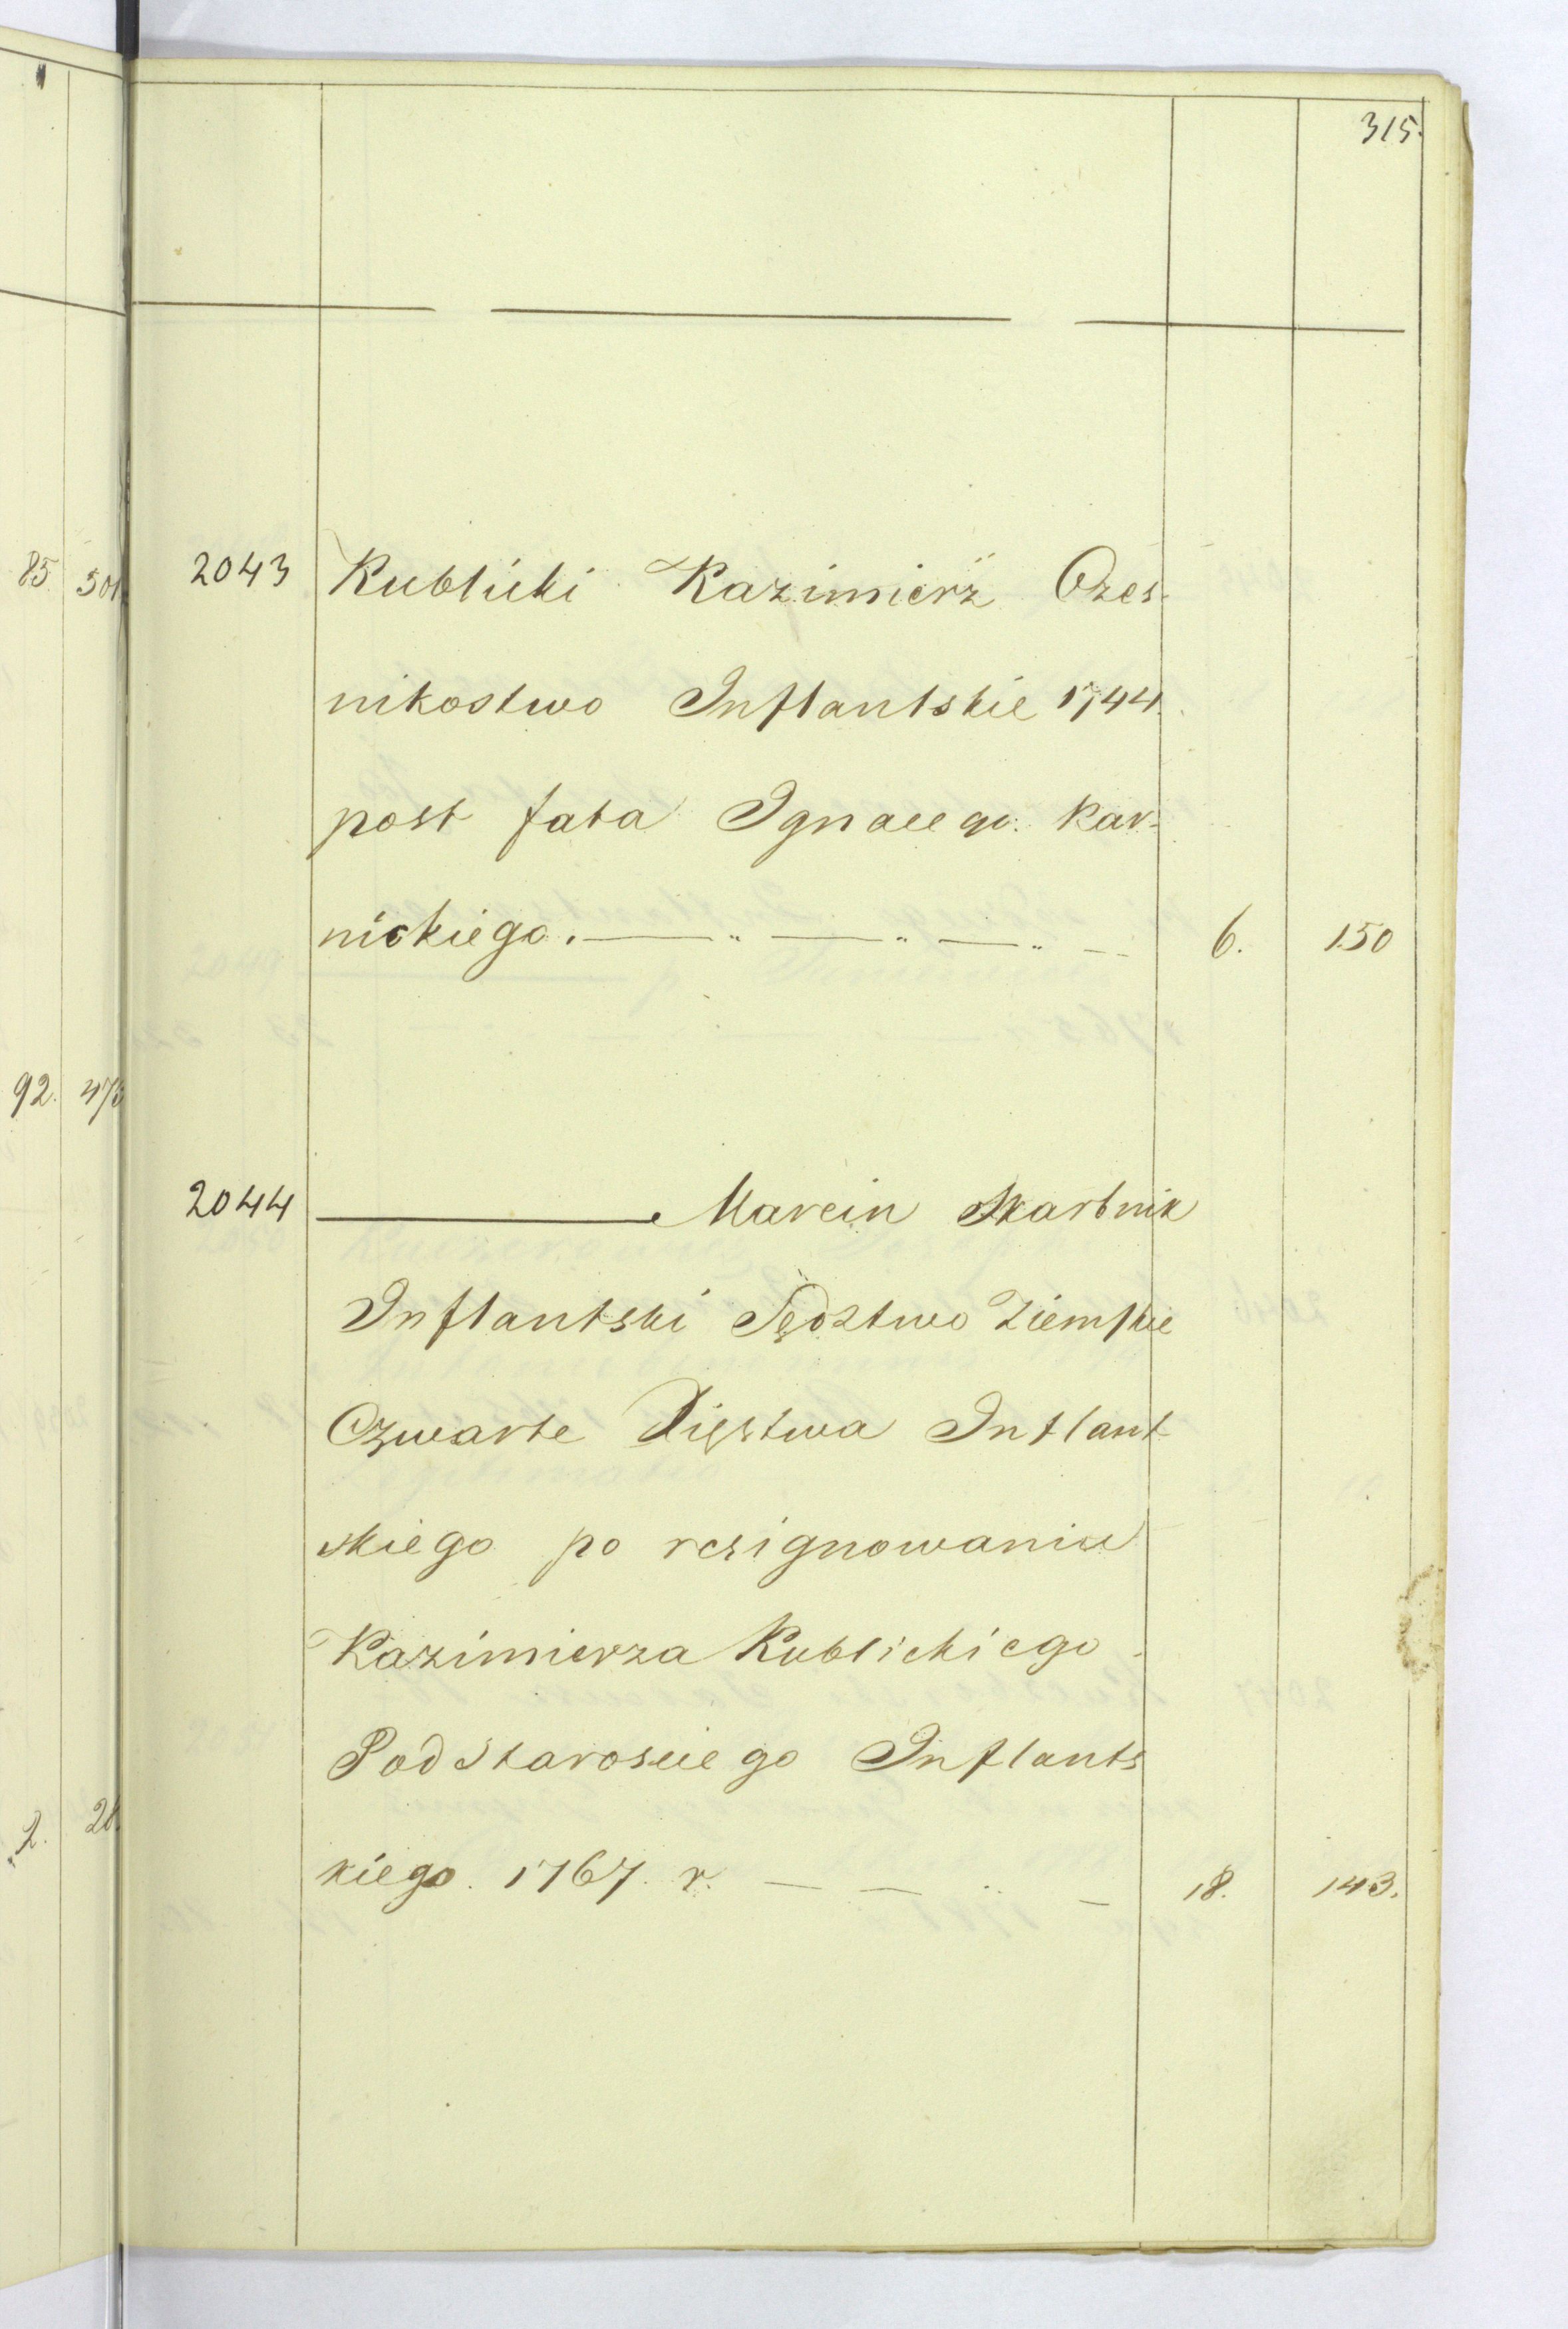 315.
85. 501
2043 Kublicki Kazimierz Czes-
nikostwo Inflantskie 1744.
post fata Ignacego Kar-
nickiego. 6. 150
92. 473
2044 Marcin Skarbnik
Inflantski Sędztwo Ziemskie
Czwarte Xięstwa Inflant-
skiego po resignowaniu
Kazimierza Kublickiego
Podstarosciego Inflants
2. 28.
kiego. 1767. r. 18. 143.